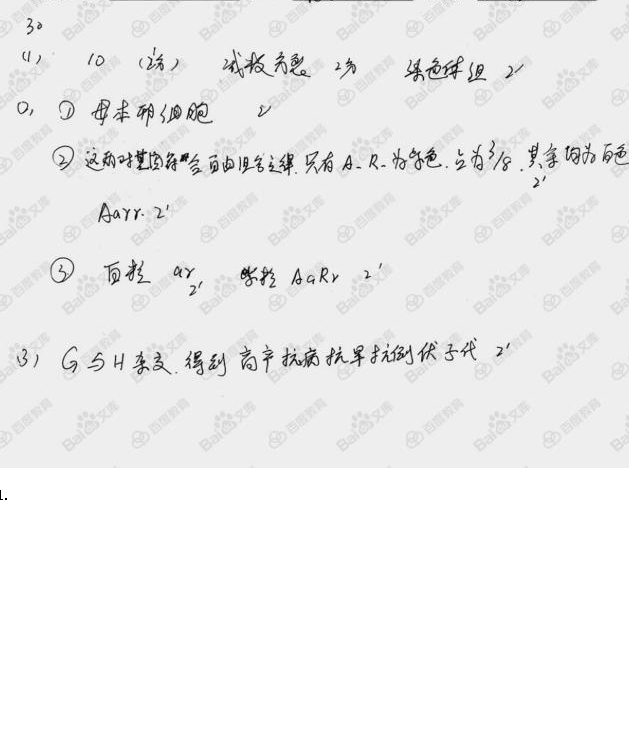 30
(1) 10 (2分) 减数分裂 2分 染色体组 2'
(2) ① 母本卵细胞 2'
② 这两对基因符合自由组合定律.只有A_R_为紫色.占为3/8.其余均为白色 2'
Aarr. 2'
③ 白粒 ar 2' 紫粒 AaRr 2'
(3) G与H杂交.得到高产抗病抗旱抗倒伏子代 2'
1.